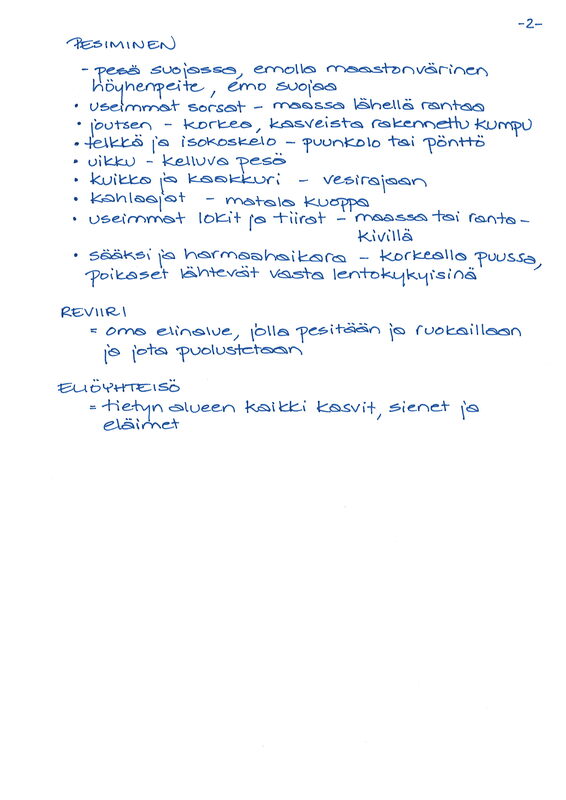 -2-
PESIMINEN
- pesä suojassa, emolla maastonvärinen
höyhenpeite, emo suojaa
• useimmat sorsat - maassa lähellä rantaa
• joutsen - korkea, kasveista rakennettu kumpu
• telkkä ja isokoskelo - puunkolo tai pönttö
• uikku - kelluva pesä
• kuikka ja kaakkuri - vesirajaan
• kahlaajat - matala kuoppa
• useimmat lokit ja tiirat - maassa tai ranta-
kivillä
• sääksi ja harmaahaikara - korkealla puussa,
poikaset lähtevät vasta lentokykyisinä
REVIIRI
= oma elinalue, jolla pesitään ja ruokaillaan
ja jota puolustetaan
ELIÖYHTEISÖ
= tietyn alueen kaikki kasvit, sienet ja
eläimet